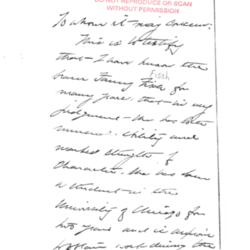 DO NOT REPRODUCE OR SCAN
WITHOUT PERMISSION
To whom it may concern:
This is to testify
that I have known the
Fisch
for
many years, that in my
judgment she has
ability and
marked strength of
character. She has been
a student in the
University of Chicago for
two years and is
work during the